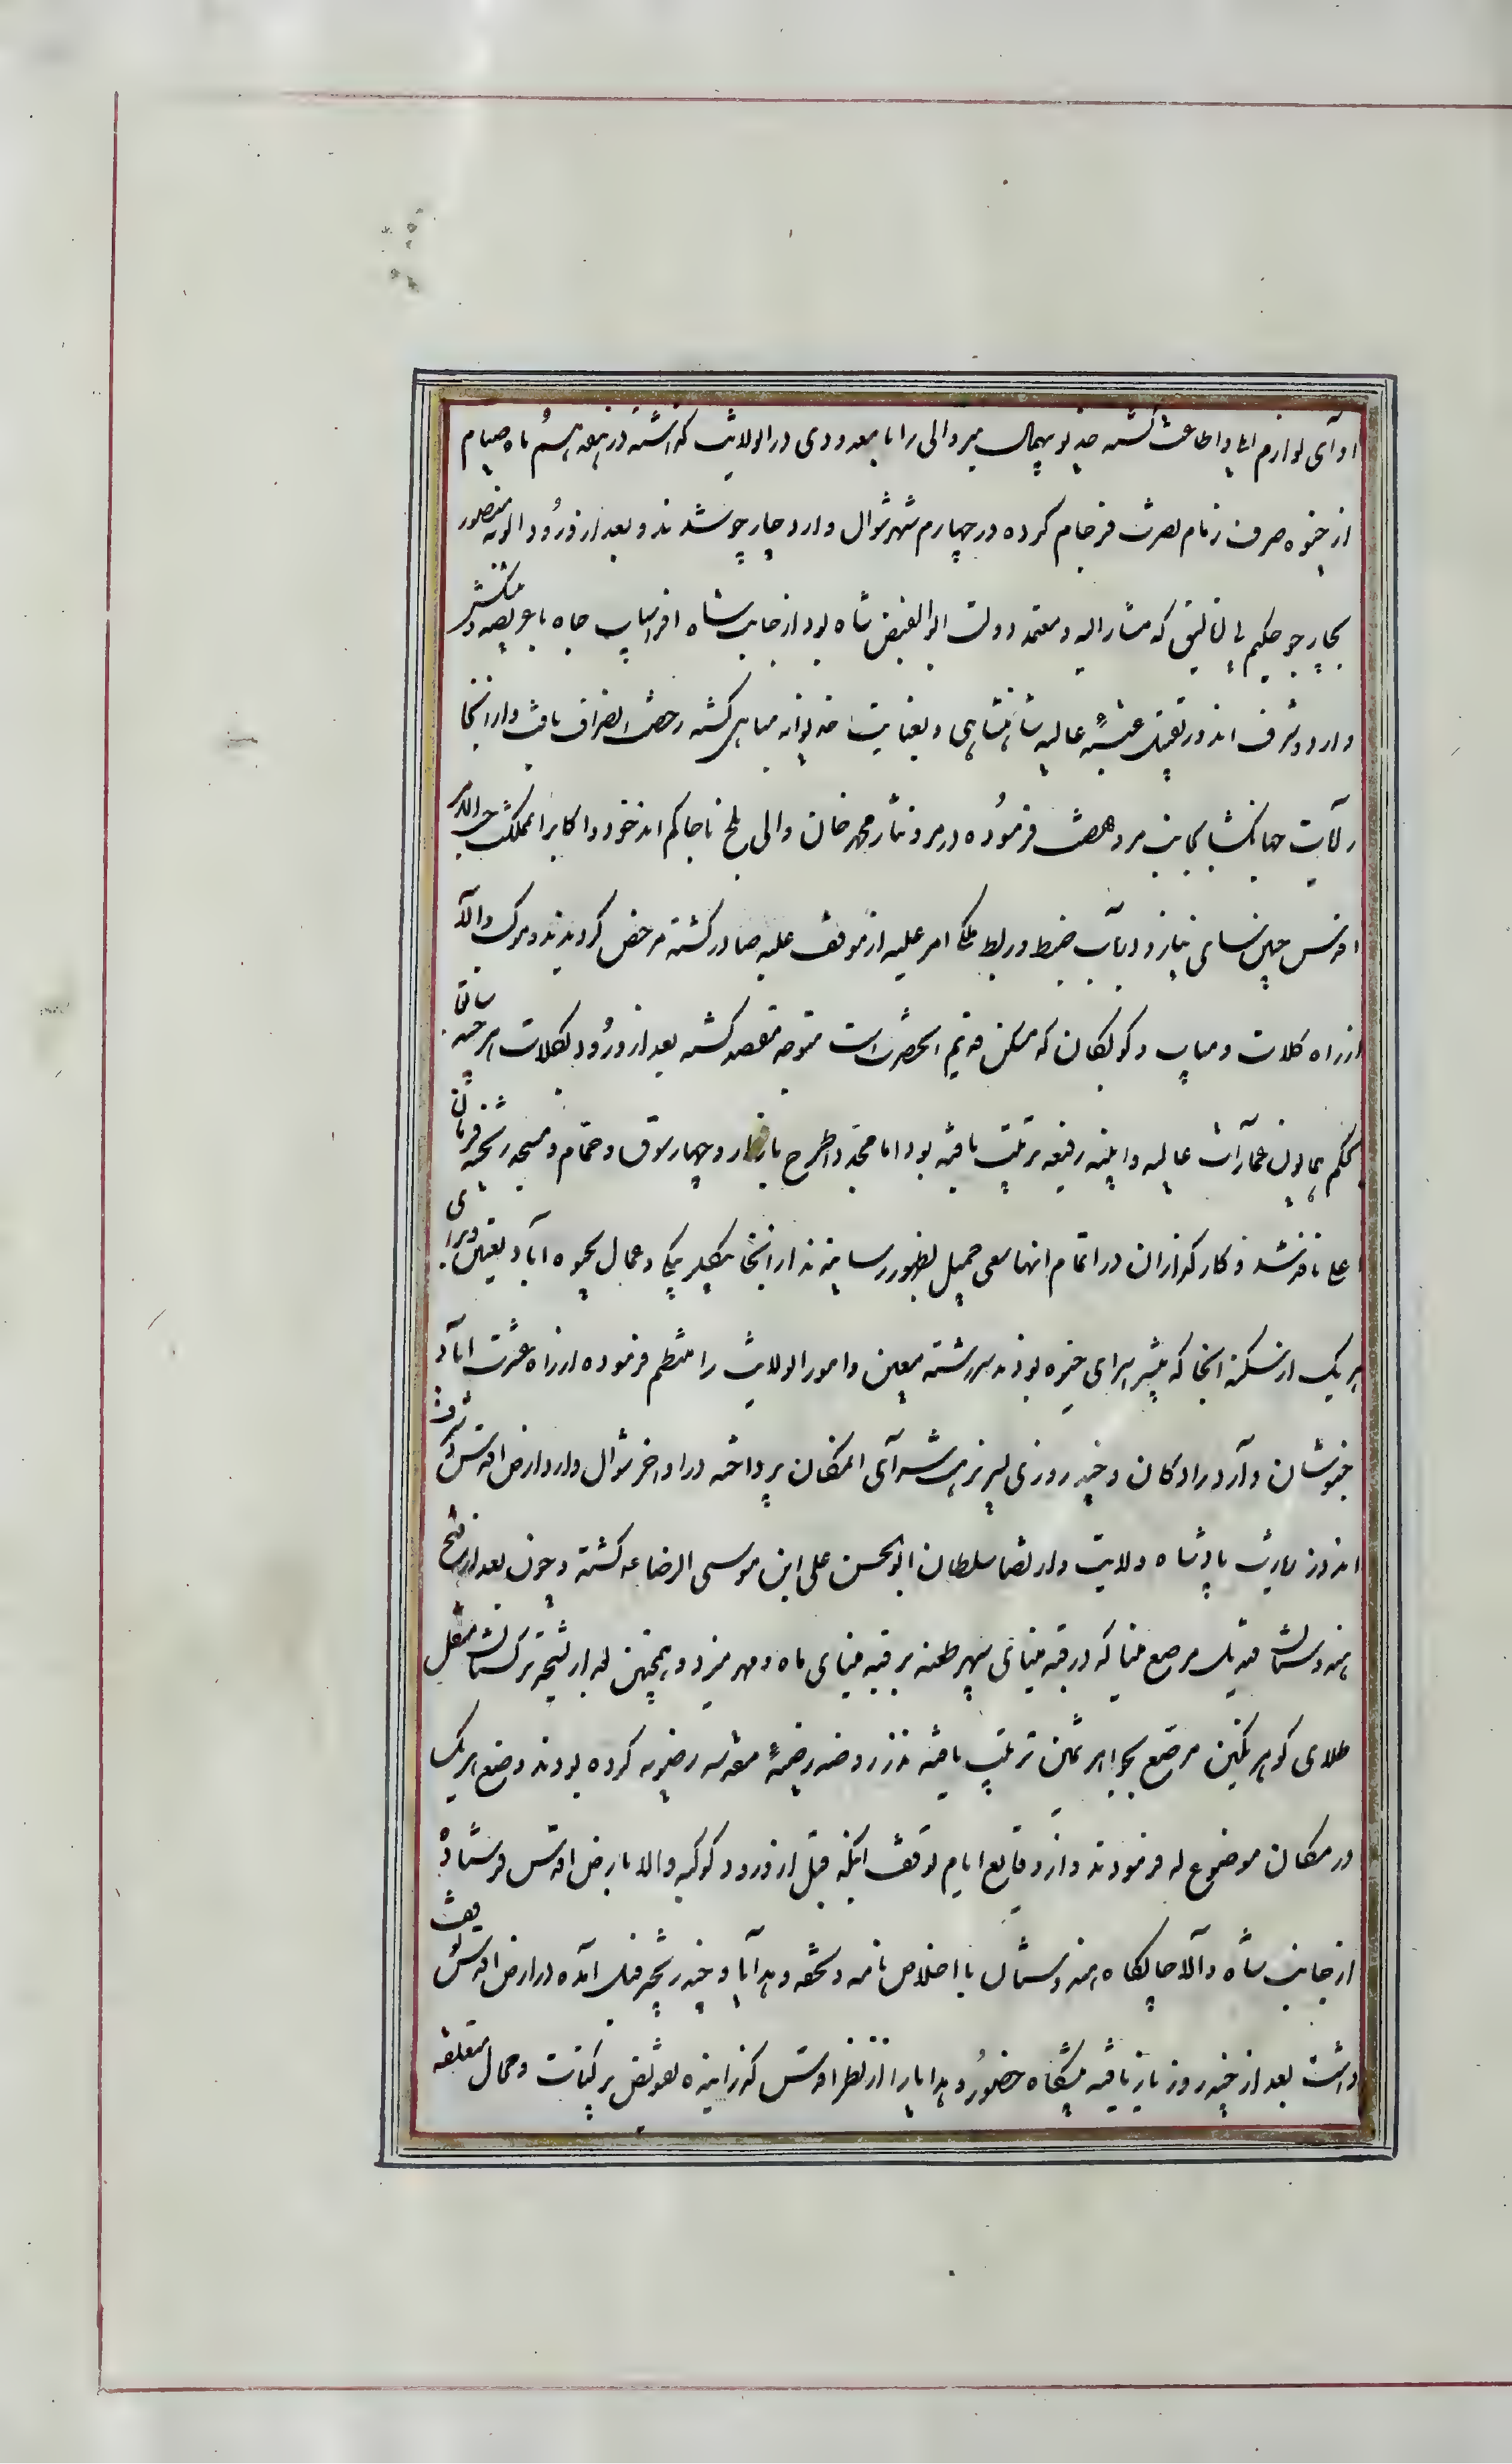 ادآی لوازم ایلی و اطاعت کشته خدیو بیهمال میر والی را با معدودی در انولایت گذاشته در هفدهم ماه صیام
از خیوه صرف زمام نصرت فرجام کرده در چهارم شهر شوال وارد چارجو شدند و بعد از ورود الویه منصور
بچارجو حکیم بی اتالیق که مشارالیه و معتمد دولت ابوالفیض شاه بود از جانب شاه افراسیاب جاه با عریضه و پیشکش
وارد و شرف اندوز تقبیل عتبهٔ عالیه شاهنشاهی و بعنایت خدیوانه مباهی کشته رخصت انصراف یافت و از انجا
رآیات جهانکشا بجانب مرو نهضت فرموده در مرو نیاز محمد خان والی بلخ تا حاکم اندخود و اکابر انمملکت حسب الامر
اقدس جبین سای نیاز و در باب ضبط و ربط ملک امر علیه از موقف علیه صادر کشته مرخص کردیدند و موکب والا
از راه کلات و میاب و کوبکان که مسکن قدیم انحضرت است متوجه مقصد کشته بعد از ورود بکلات اکرچه سابقا
بحکم همایون عمارات عالیه و ابنیه رفیعه ترتیب یافته بود اما مجددا طرح بازار و چهار سوق و حمام و مسجد ریخته فرمان
اعلی نافذ شد و کارکذاران در اتمام انها سعی جمیل بظهور رسانیدند از انجا بیکلربیکی و عمال بخیوه آباد تعیین و برای
هر یک از سکنه انجا که پیشتر اسرای خیوه بودند سررشته معین و امور انولایت را منتظم فرموده از راه عشرت اباد
خبوشان و آرد رادکان و چند روزی بسیر نزهت سرآی المکان پرداخته در اواخر شوال وارد ارض اقدس و شرف
اندوز زیارت پادشاه ولایت و ارتضا سلطان ابوالحسن علی ابن موسی الرضا عه کشته و چون بعد از فتح
هندوستان قندیل مرصع مینا که در قبه مینای سپهر طعنه بر قبه مینای ماه و مهر میزد و همچنین بعد از تسخیر ترکستان قفل
طلای کوهر نکین مرصع بجواهر ثمین ترتیب یافته نذر روضه رضیهٔ مقدسه رضویه کرده بودند وضع هر یک
در مکان موضوع له فرمودند و از وقایع ایام توقف انکه قبل از ورود کوکبه والا بارض اقدس فرستاده
از جانب شاه والا جایکاه هندوستان با اخلاص نامه و تحفه و هدایا و چند زنجیر فیل آمده در ارض اقدس توقف
داشت بعد از چند روز باز یافته پیشکاه حضور و هدایا را از نظر اقدس کذرانیده تفویض برکنات و محال متعلقه